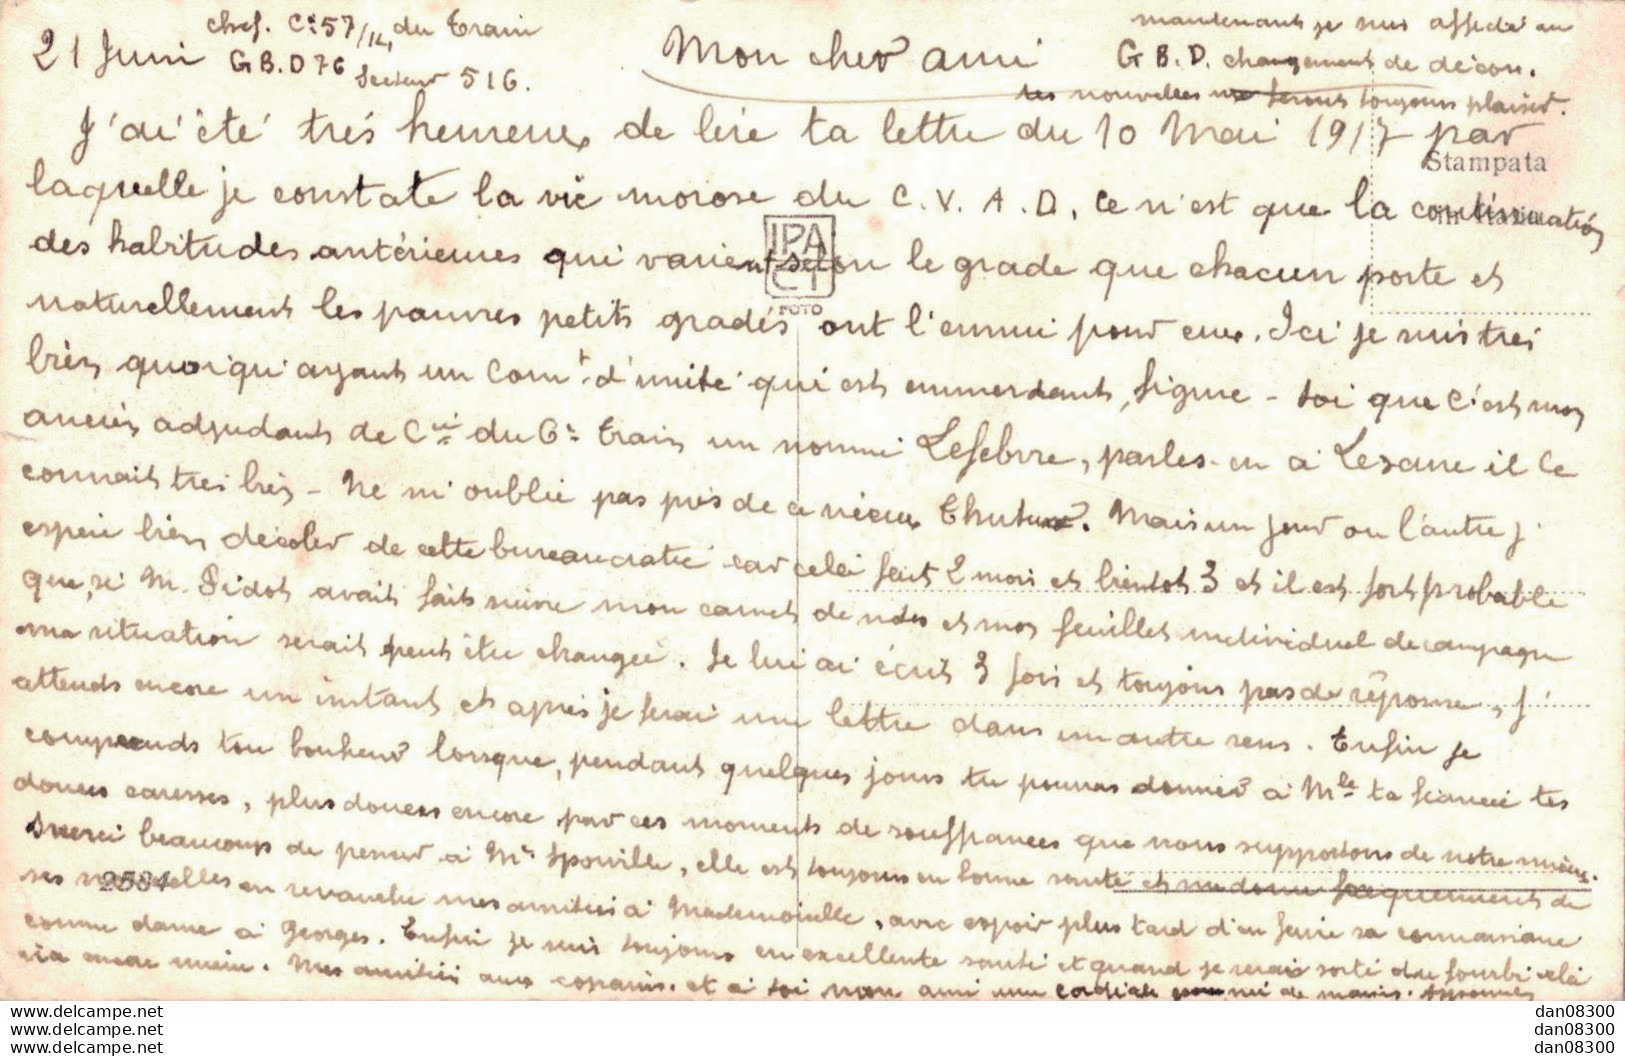 21 Juni chef. Cie 57/12, du Train
G B. D 76 Secteur 516.
Mon cher ami
maintenant je suis affecté au
G B. D. changement de décor.
tes nouvelles me feront toujours plaisir.
J'ai été très heureux de lire ta lettre du 10 Mai 1917 par
Stampata
laquelle je constate la vie morose du C. V. A. D. Ce n'est que la continuation
des habitudes antérieures qui varient selon le grade que chacun porte et
IPA CT
FOTO
naturellement les pauvres petits gradés ont l'ennui pour eux. Ici je suis très
bien quoiqu'ayant un Comt d'unité qui est emmerdant, figure-toi que c'est mon
ancien adjudant de Cie du 6e train un nommé Lefebvre, parles-en à Lesane il le
connait très bien - Ne m'oublie pas près de ce vieux. Mais un jour ou l'autre j'
espère bien décoler de cette bureaucratie car cela fait 2 mois et bientot 3 et il est fort probable
que, si M. Pidot avait fait suivre mon carnet de notes et mon feuillet individuel de campagne
ma situation serait peut être changée. Je lui ai écrit 3 fois et toujours pas de réponse, j'
attends encore un instant et après je ferai une lettre dans un autre sens. Enfin je
comprends ton bonheur lorsque, pendant quelques jours tu pourras donner à Mlle ta fiancée tes
douces caresses, plus douces encore par ces moments de souffrances que nous supportons de notre mieux.
merci beaucoup de penser à Me Spoville, elle est toujours en bonne santé et me donne fréquemment de
ses nouvelles en revanche mes amitiés à Mademoiselle, avec espoir plus tard d'en faire sa connaissance
2584
comme dame à Georges. Enfin je suis toujours en excellente santé et quand je serai sorti du fourbi cela
ira encore mieux. Mes amitiés aux copains. et à toi mon ami une cordiale poignée de mains.
dan08300
dan08300
dan08300
dan08300
dan08300
dan08300